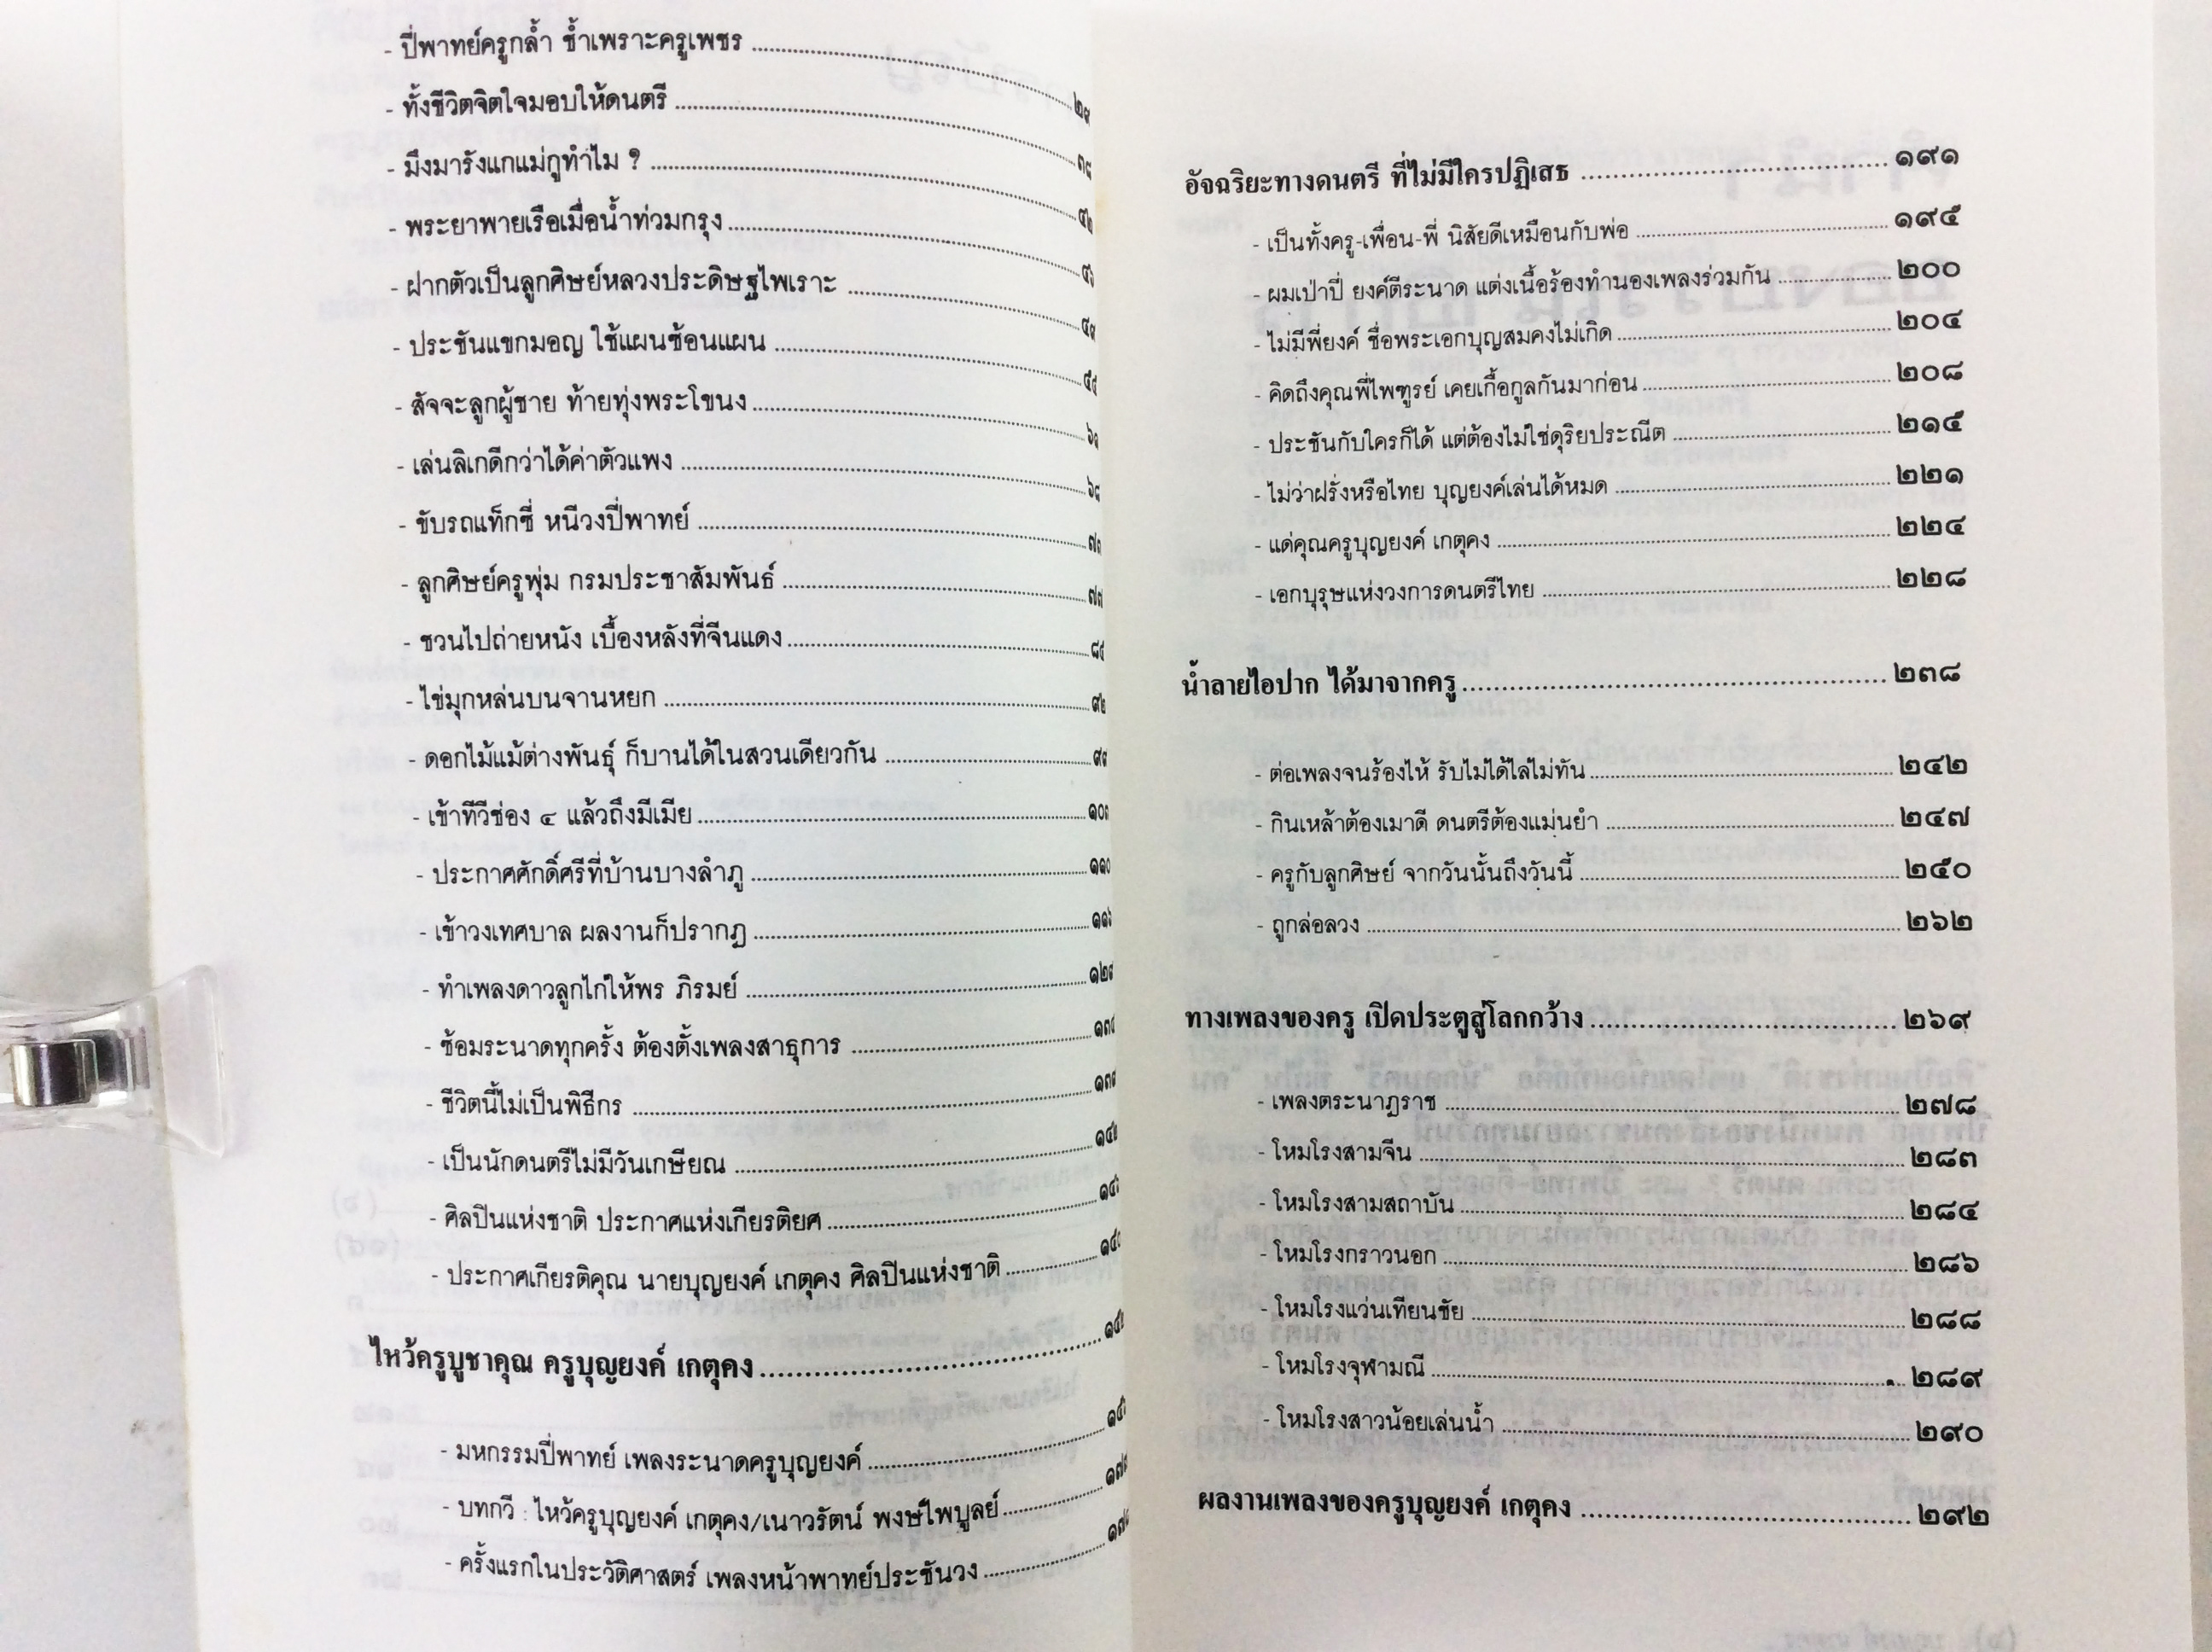 - ปี่พาทย์ครูกล้ำ ช้ำเพราะครูเพชร
- ทั้งชีวิตจิตใจมอบให้ดนตรี
- มึงมารังแกแม่กูทำไม ?
- พระยาพายเรือเมื่อน้ำท่วมกรุง
- ฝากตัวเป็นลูกศิษย์หลวงประดิษฐไพเราะ
- ประชันแขกมอญ ใช้แผนซ้อนแผน
- สัจจะลูกผู้ชาย ท้ายทุ่งพระโขนง
- เล่นลิเกดีกว่าได้ค่าตัวแพง
- ขับรถแท็กซี่ หนีวงปี่พาทย์
- ลูกศิษย์ครูพุ่ม กรมประชาสัมพันธ์
- ชวนไปถ่ายหนัง เบื้องหลังที่จีนแดง
- ไข่มุกหล่นบนจานหยก
- ดอกไม้แม้ต่างพันธุ์ ก็บานได้ในสวนเดียวกัน
- เข้าทีวีช่อง ๔ แล้วถึงมีเมีย
- ประกาศศักดิ์ศรีที่บ้านบางลำภู
- เข้าวงเทศบาล ผลงานก็ปรากฏ
- ทำเพลงดาวลูกไก่ให้พร ภิรมย์
- ซ้อมระนาดทุกครั้ง ต้องตั้งเพลงสาธุการ
- ชีวิตนี้ไม่เป็นพิธีกร
- เป็นนักดนตรีไม่มีวันเกษียณ
- ศิลปินแห่งชาติ ประกาศแห่งเกียรติยศ
- ประกาศเกียรติคุณ นายบุญยงค์ เกตุคง ศิลปินแห่งชาติ
ไหว้ครูบูชาคุณ ครูบุญยงค์ เกตุคง
- มหกรรมปี่พาทย์ เพลงระนาดครูบุญยงค์
- บทกวี : ไหว้ครูบุญยงค์ เกตุคง/เนาวรัตน์ พงษ์ไพบูลย์
- ครั้งแรกในประวัติศาสตร์ เพลงหน้าพาทย์ประชันวง
อัจฉริยะทางดนตรี ที่ไม่มีใครปฏิเสธ ๑๙๑
- เป็นทั้งครู-เพื่อน-พี่ นิสัยดีเหมือนกับพ่อ ๑๙๕
- ผมเป่าปี่ ยงค์ตีระนาด แต่งเนื้อร้องทำนองเพลงร่วมกัน ๒๐๐
- ไม่มีพี่ยงค์ ชื่อพระเอกบุญสมคงไม่เกิด ๒๐๔
- คิดถึงคุณพี่ไพฑูรย์ เคยเกื้อกูลกันมาก่อน ๒๐๘
- ประชันกับใครก็ได้ แต่ต้องไม่ใช่ดุริยประณีต ๒๑๕
- ไม่ว่าฝรั่งหรือไทย บุญยงค์เล่นได้หมด ๒๒๑
- แด่คุณครูบุญยงค์ เกตุคง ๒๒๔
- เอกบุรุษแห่งวงการดนตรีไทย ๒๒๘
น้ำลายไอปาก ได้มาจากครู ๒๓๘
- ต่อเพลงจนร้องไห้ รับไม่ได้ไล่ไม่ทัน ๒๔๒
- กินเหล้าต้องเมาดี ดนตรีต้องแม่นยำ ๒๔๗
- ครูกับลูกศิษย์ จากวันนั้นถึงวันนี้ ๒๕๐
- ถูกล่อลวง ๒๖๒
ทางเพลงของครู เปิดประตูสู่โลกกว้าง ๒๖๙
- เพลงตระนาฏราช ๒๗๘
- โหมโรงสามจีน ๒๘๓
- โหมโรงสามสถาบัน ๒๘๔
- โหมโรงกราวนอก ๒๘๖
- โหมโรงแว่นเทียนชัย ๒๘๘
- โหมโรงจุฬามณี ๒๘๙
- โหมโรงสาวน้อยเล่นน้ำ ๒๙๐
ผลงานเพลงของครูบุญยงค์ เกตุคง ๒๙๒